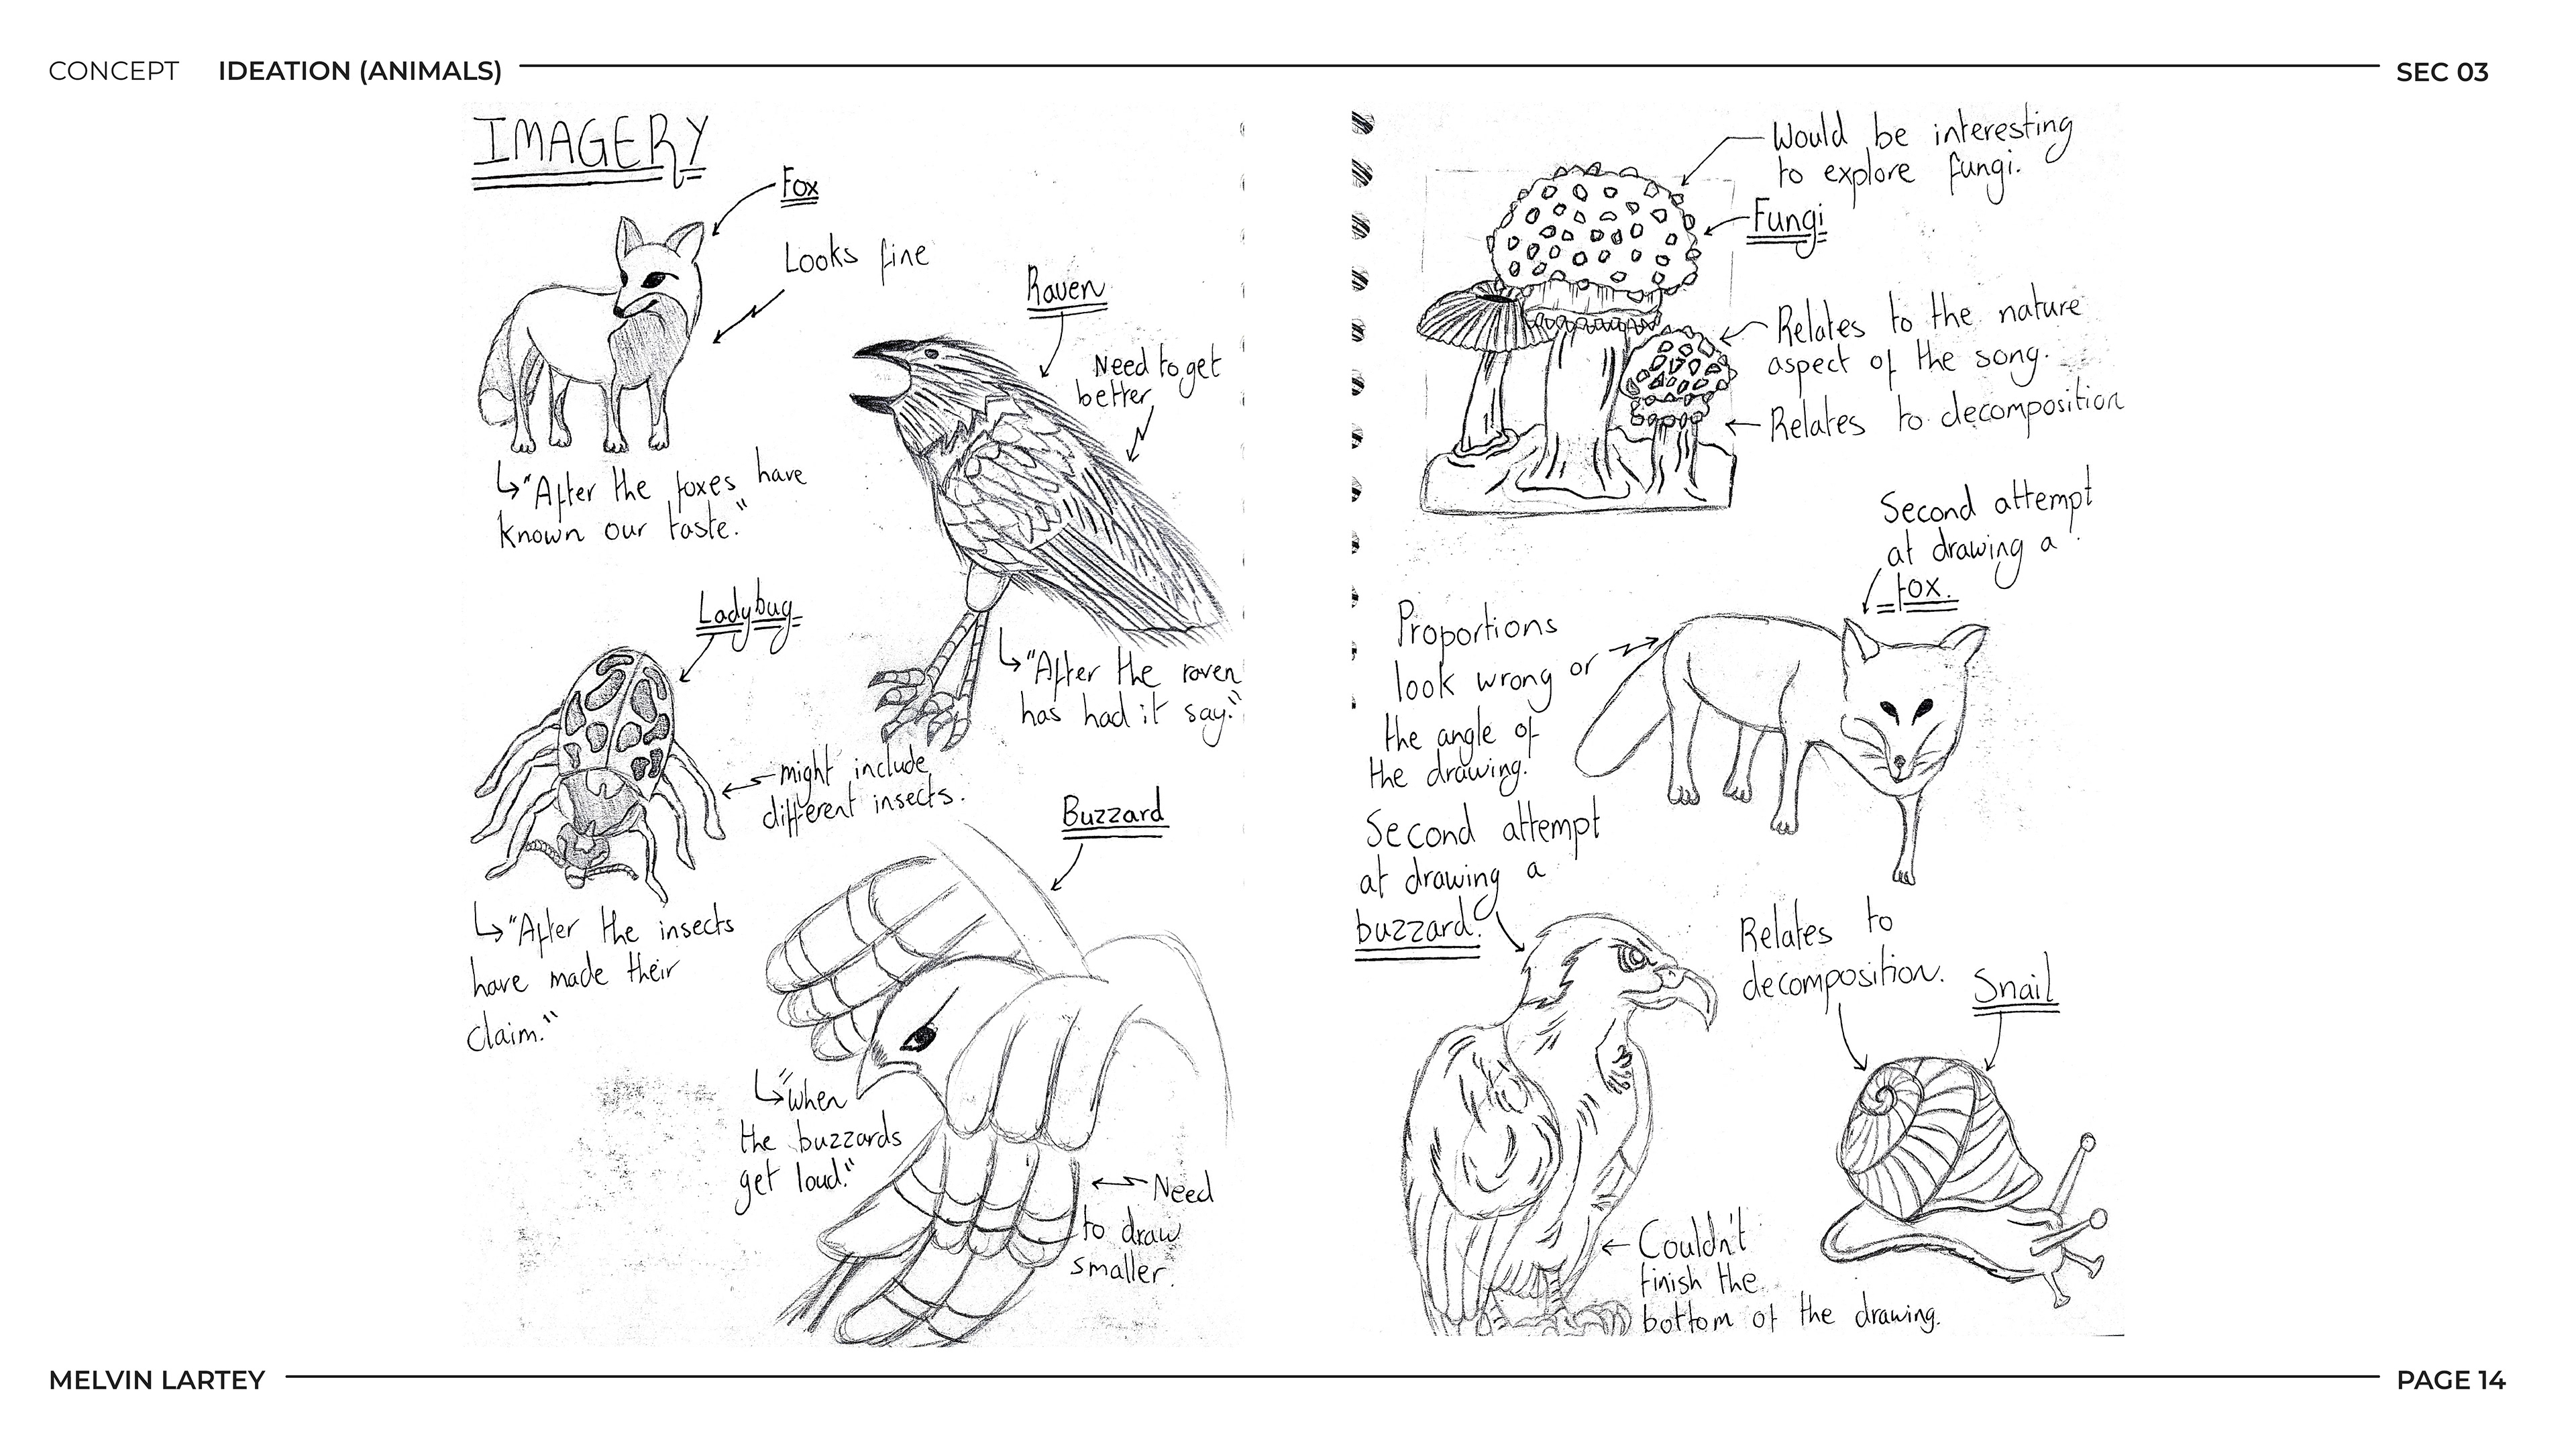 CONCEPT IDEATION (ANIMALS)
SEC 03
IMAGERY
Fox
Looks fine
"After the foxes have
known our taste."
Raven
Need to get
better
"After the raven
has had it say."
Ladybug
might include
different insects.
"After the insects
have made their
claim."
Buzzard
"When
the buzzards
get loud."
Need
to draw
smaller.
Would be interesting
to explore fungi.
Fungi
Relates to the nature
aspect of the song.
Relates to decomposition
Second attempt
at drawing a
fox.
Proportions
look wrong or
the angle of
the drawing.
Second attempt
at drawing a
buzzard.
Relates to
decomposition.
Snail
Couldn't
finish the
bottom of the drawing.
MELVIN LARTEY
PAGE 14